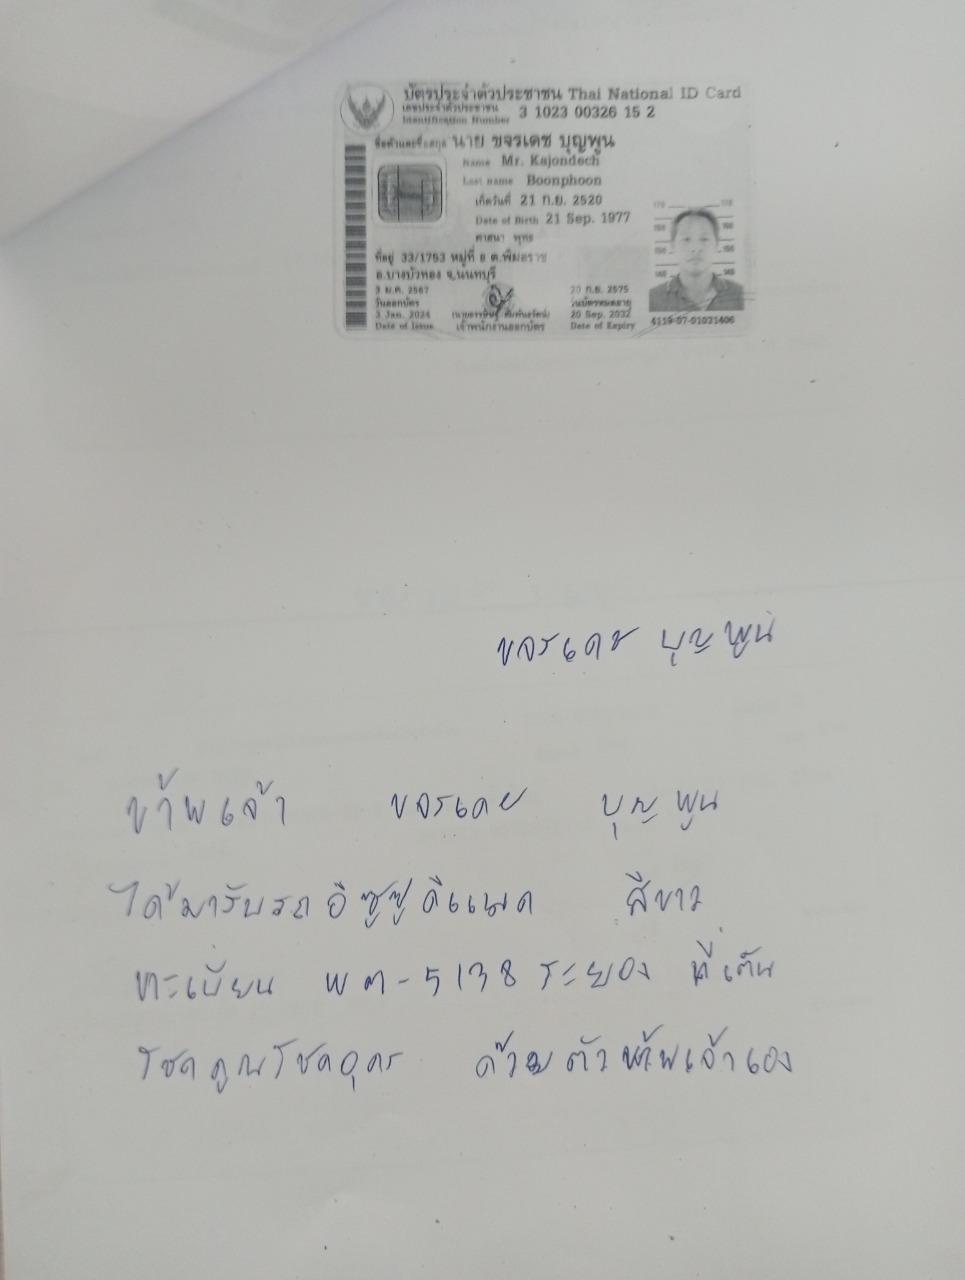 บัตรประจำตัวประชาชน Thai National ID Card
เลขประจำตัวประชาชน
Identification Number 3 1023 00326 15 2
ชื่อตัวและชื่อสกุล นาย ขจรเดช บุญพูน
Name Mr. Kajondech
Last name Boonphoon
เกิดวันที่ 21 ก.ย. 2520
Date of Birth 21 Sep. 1977
ศาสนา พุทธ
ที่อยู่ 33/1753 หมู่ที่ 8 ต.พิมลราช
อ.บางบัวทอง จ.นนทบุรี
3 ม.ค. 2567
วันออกบัตร
3 Jan. 2024
Date of Issue
เจ้าพนักงานออกบัตร
20 ก.ย. 2575
วันบัตรหมดอายุ
20 Sep. 2032
Date of Expiry
4119-07-01031406
ขจรเดช บุญพูน
ข้าพเจ้า ขจรเดช บุญพูน
ได้มารับรถอีซูซูดีแมค สีขาว
ทะเบียน 5138 ระยอง ที่เต็น
โชคคูณโชคอุดร ด้วยตัวข้าพเจ้าเอง